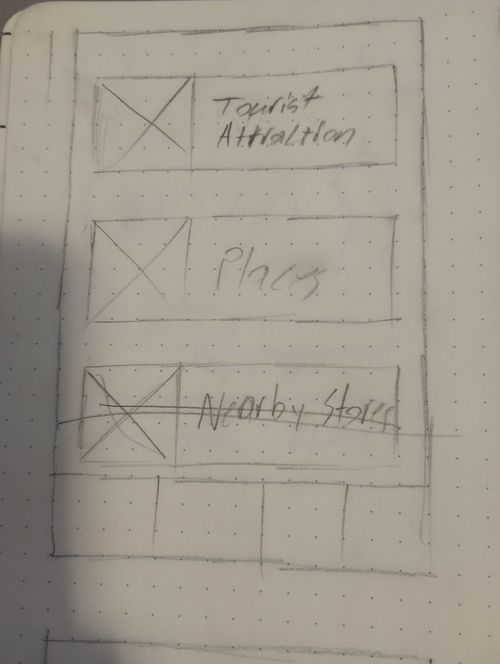 Tourist
Attraction
Places
Nearby Stores